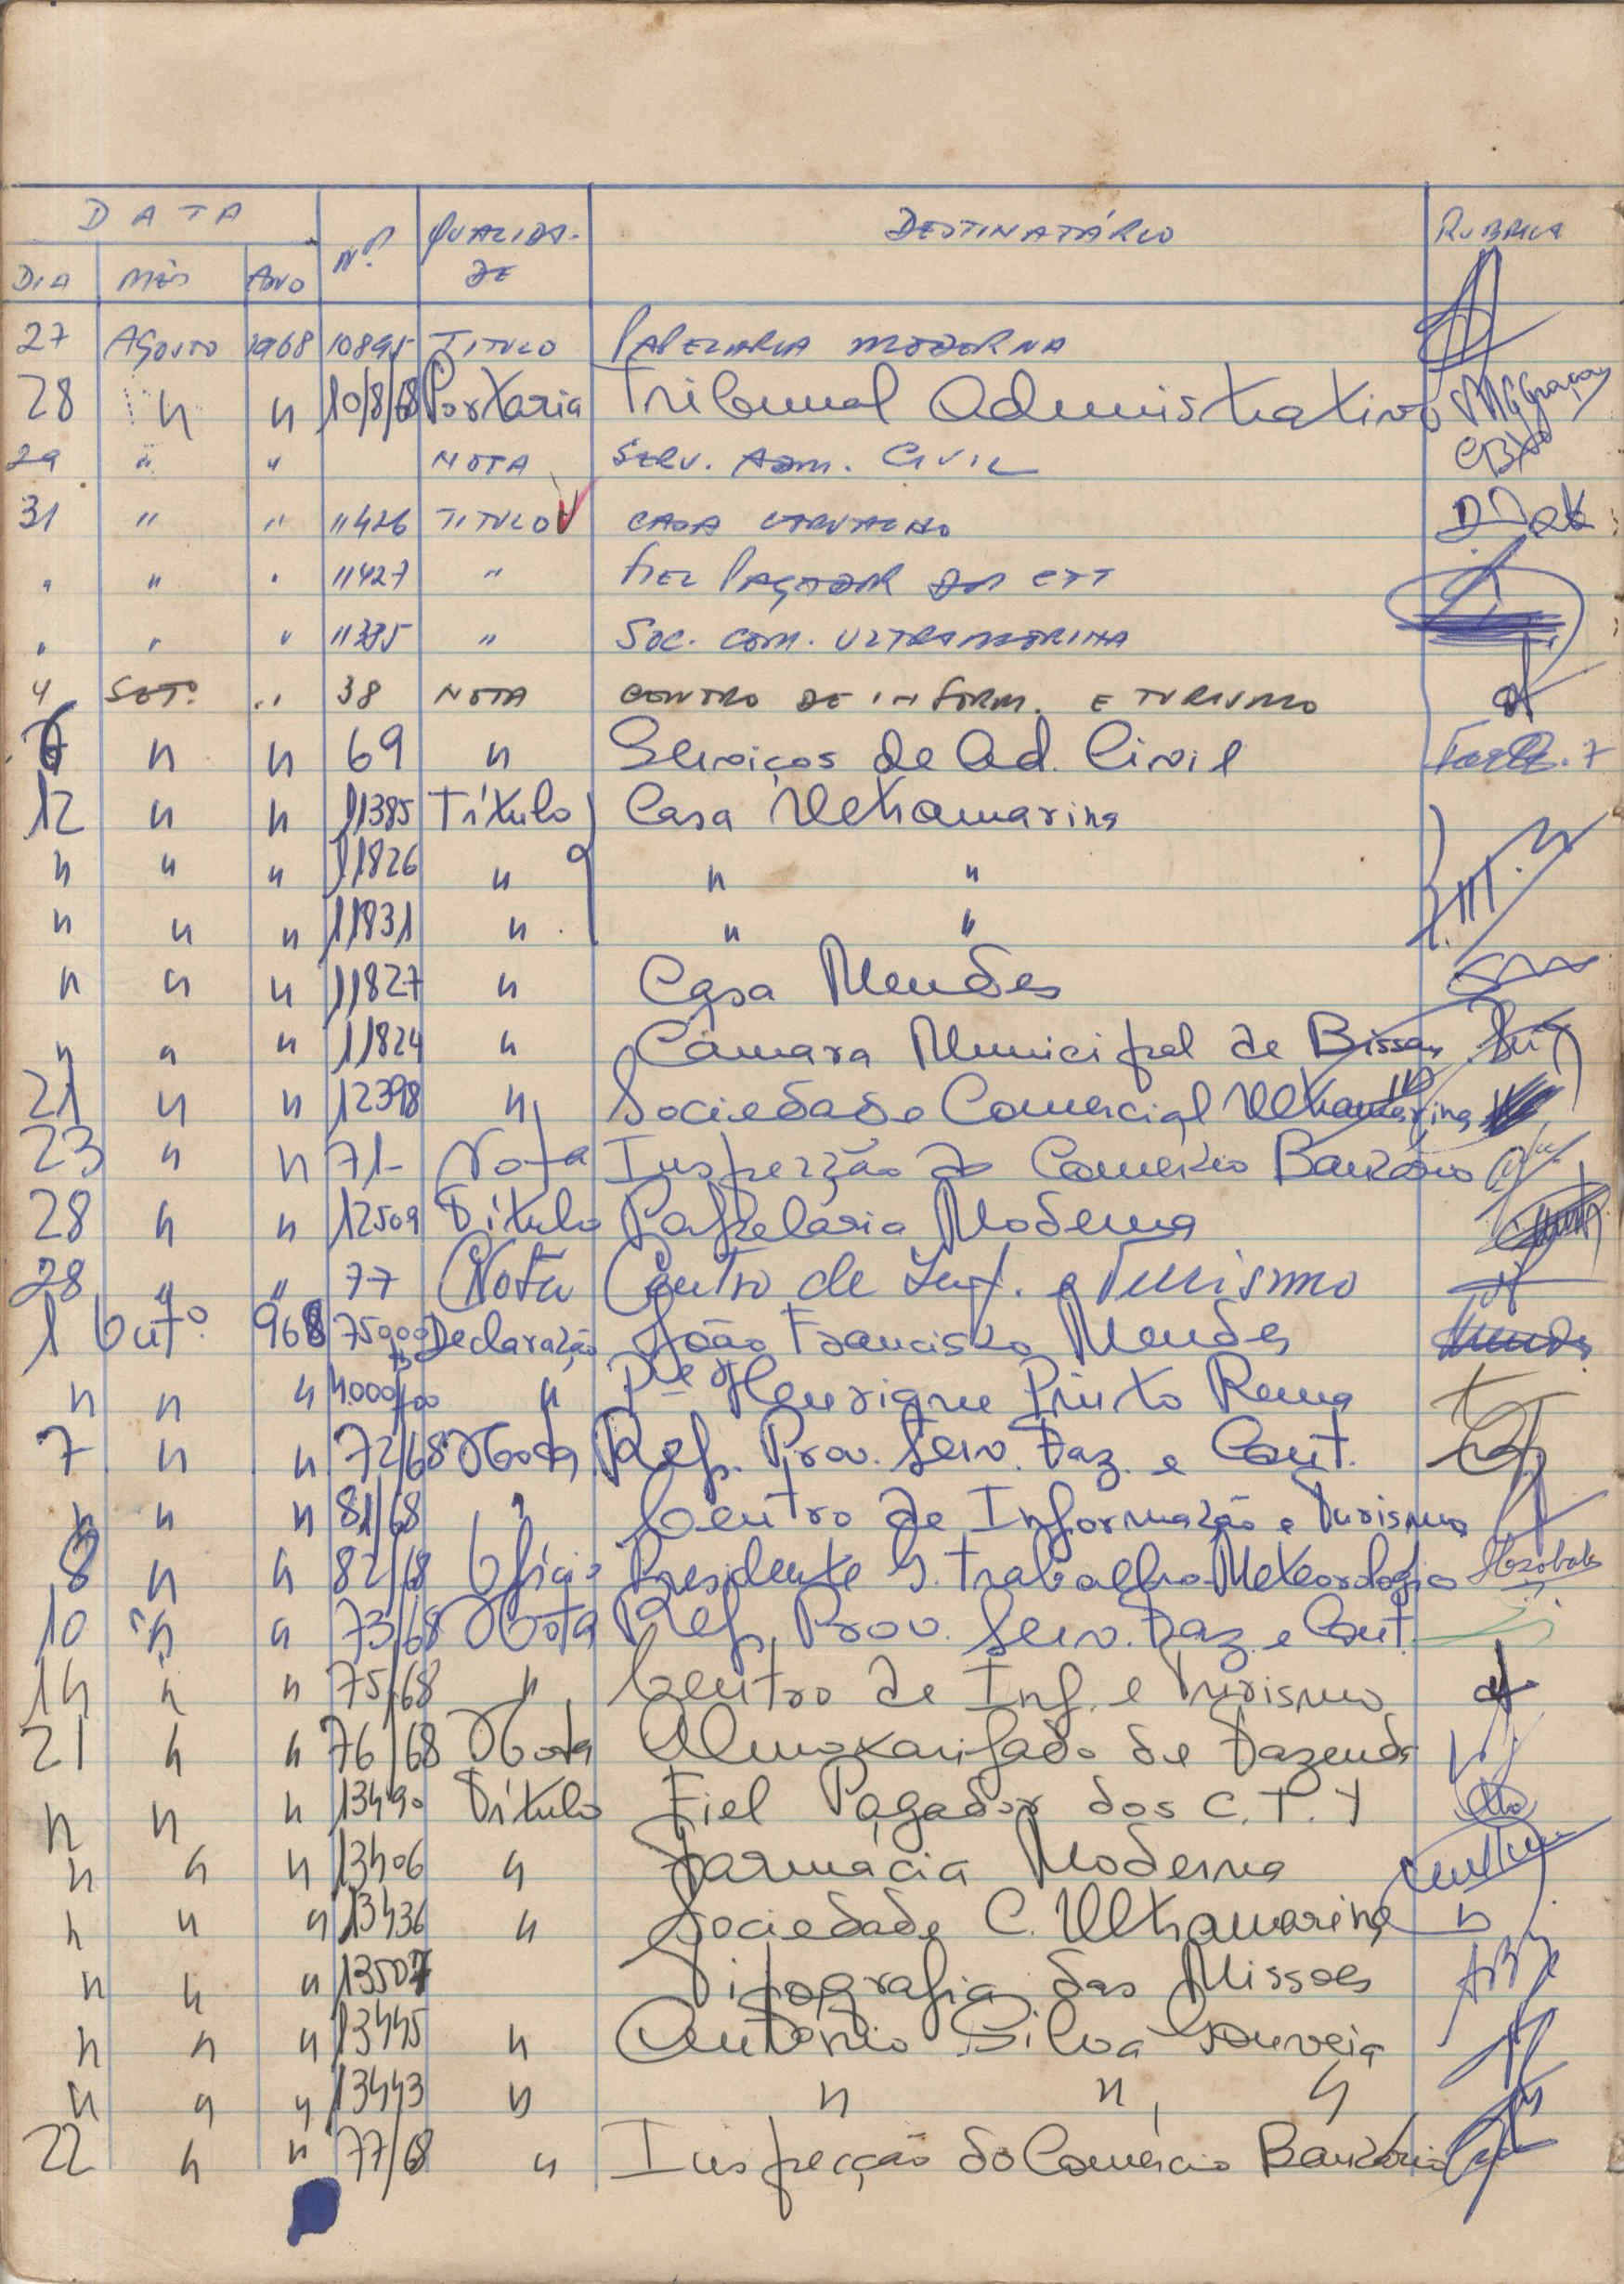 DATA Nº QUALIDA- DESTINATÁRIO RUBRICA
DIA MÊS ANO DE
27 AGOSTO 1968 10895 TITULO PAPELARIA MODERNA
28 " " 10/8/68 Portaria Tribunal Administrativo
29 " " NOTA SERV. ADM. CIVIL
31 " " 11426 TITULO CASA CARVALHO
" " " 11427 " FIEL PAGADOR DOS CTT
" " " 11335 " SOC. COM. ULTRAMARINA
4 SETº " 38 NOTA CENTRO DE INFORM. E TURISMO
" " 69 " Serviços de Ad. Civil
12 " " 11385 Título Casa Ultramarina
" " " 11826 " " "
" " " 11831 " " "
" " " 11827 " Casa Mendes
" " " 11824 " Câmara Municipal de Bissau
21 " " 12398 " Sociedade Comercial Ultramarina
23 " " 71- Nota Inspecção do Comércio Bancário
28 " " 12509 Título Papelaria Moderna
28 " " 77 Nota Centro de Inf. e Turismo
1 Outº. 968 Declaração João Francisco Mendes
" " " " Pe Henrique Pinto Rema
7 " " 72/68 Nota Rep. Prov. Serv. Faz. e Cont.
" " " 81/68 " Centro de Informação e Turismo
8 " " 82/68 Ofício Presidente G. trabalho Meteorologia
10 " " 73/68 Nota Rep. Prov. Serv. Faz. e Cont.
14 " " 75/68 " Centro de Inf. e Turismo
21 " " 76/68 Nota Almoxarifado de Fazenda
" " " 13490 Título Fiel Pagador dos C.T.T
" " " 13406 " Farmácia Moderna
" " " 13436 " Sociedade C. Ultramarina
" " " 13507 Tipografia das Missões
" " " 13445 " António Silva Gouveia
" " " 13443 " " " "
22 " " 77/68 " Inspecção do Comércio Bancário